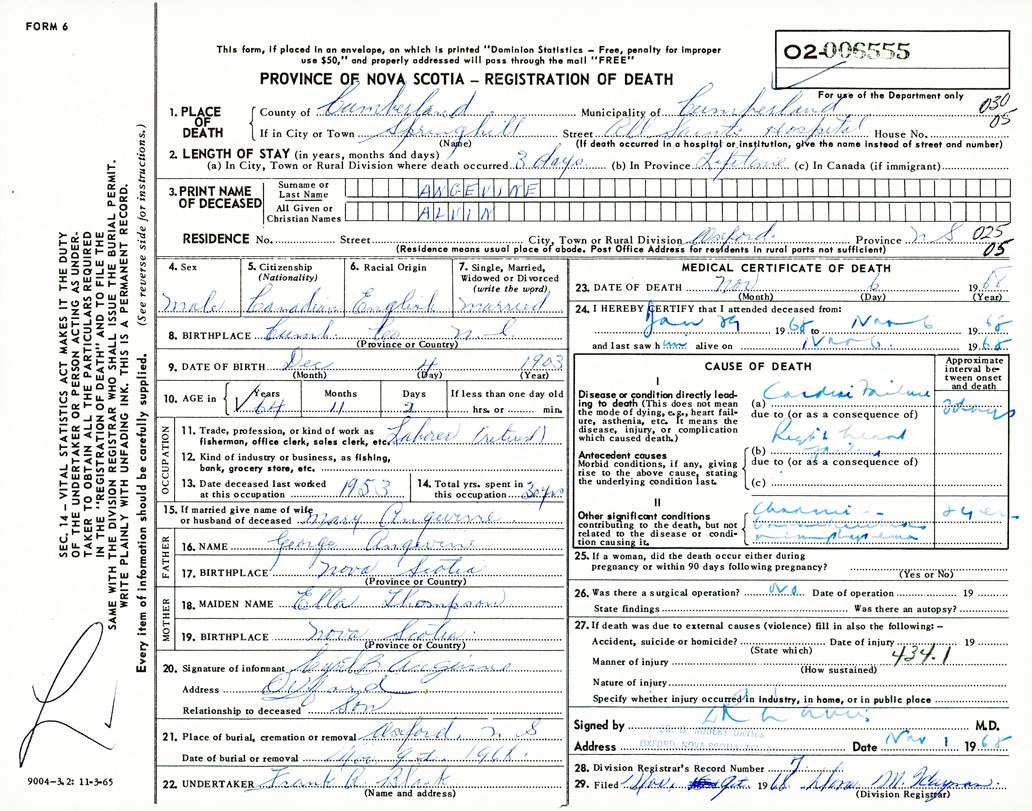 FORM 6
O2-006555
This form, if placed in an envelope, on which is printed "Dominion Statistics – Free, penalty for improper
use $50," and properly addressed will pass through the mail "FREE"
PROVINCE OF NOVA SCOTIA – REGISTRATION OF DEATH
For use of the Department only
030
05
1. PLACE OF DEATH
County of Cumberland Municipality of Cumberland
If in City or Town Springhill Street All Saints Hospital House No.
(Name) (If death occurred in a hospital or institution, give the name instead of street and number)
2. LENGTH OF STAY (in years, months and days)
(a) In City, Town or Rural Division where death occurred 3 days (b) In Province Lifetime (c) In Canada (if immigrant)
3. PRINT NAME OF DECEASED
Surname or Last Name ANGEVINE
All Given or Christian Names ALVIN
RESIDENCE No. Street City, Town or Rural Division Oxford Province N S 025
05
(Residence means usual place of abode. Post Office Address for residents in rural parts not sufficient)
4. Sex Male
5. Citizenship (Nationality) Canadian
6. Racial Origin English
7. Single, Married, Widowed or Divorced (write the word) Married
8. BIRTHPLACE Cumb. Co N.S
(Province or Country)
9. DATE OF BIRTH Dec 4 1903
(Month) (Day) (Year)
10. AGE in Years 64 Months 11 Days 2 If less than one day old hrs. or min.
OCCUPATION
11. Trade, profession, or kind of work as fisherman, office clerk, sales clerk, etc. Laborer (retired)
12. Kind of industry or business, as fishing, bank, grocery store, etc.
13. Date deceased last worked at this occupation 1953
14. Total yrs. spent in this occupation 30 yrs
15. If married give name of wife or husband of deceased Mary Angevine
FATHER
16. NAME George Angevine
17. BIRTHPLACE Nova Scotia
(Province or Country)
MOTHER
18. MAIDEN NAME Ella Thompson
19. BIRTHPLACE Nova Scotia
(Province or Country)
20. Signature of informant Angevine
Address Oxford
Relationship to deceased Son
21. Place of burial, cremation or removal Oxford, N S
Date of burial or removal Nov 9th 1968
22. UNDERTAKER Frank A. Black
(Name and address)
MEDICAL CERTIFICATE OF DEATH
23. DATE OF DEATH Nov 6 1968
(Month) (Day) (Year)
24. I HEREBY CERTIFY that I attended deceased from:
Jan 29 1968 to Nov 6 1968
and last saw him alive on Nov 6 1968
CAUSE OF DEATH
Approximate interval between onset and death
I
Disease or condition directly leading to death (This does not mean the mode of dying, e.g., heart failure, asthenia, etc. It means the disease, injury, or complication which caused death.)
(a) Cardiac Failure 3 days
due to (or as a consequence of)
Antecedent causes
Morbid conditions, if any, giving rise to the above cause, stating the underlying condition last.
(b) Right heart failure
due to (or as a consequence of)
(c)
II
Other significant conditions contributing to the death, but not related to the disease or condition causing it.
Chronic
emphysema
25. If a woman, did the death occur either during
pregnancy or within 90 days following pregnancy?
(Yes or No)
26. Was there a surgical operation? No Date of operation 19
State findings Was there an autopsy?
27. If death was due to external causes (violence) fill in also the following: –
Accident, suicide or homicide? Date of injury 19
(State which)
Manner of injury 434.1
(How sustained)
Nature of injury
Specify whether injury occurred in industry, in home, or in public place
Signed by M.D.
DR. D. ROBERT DAVIES
Address OXFORD, NOVA SCOTIA Date Nov 1968
28. Division Registrar's Record Number 7
29. Filed Nov. 9th 1968
(Division Registrar)
SEC. 14 – VITAL STATISTICS ACT MAKES IT THE DUTY
OF THE UNDERTAKER OR PERSON ACTING AS UNDER-
TAKER TO OBTAIN ALL THE PARTICULARS REQUIRED
IN THE "REGISTRATION OF DEATH" AND TO FILE THE
SAME WITH THE DIVISION REGISTRAR WHO SHALL ISSUE THE BURIAL PERMIT.
WRITE PLAINLY WITH UNFADING INK. THIS IS A PERMANENT RECORD.
Every item of information should be carefully supplied. (See reverse side for instructions.)
9004-3.2: 11-3-65